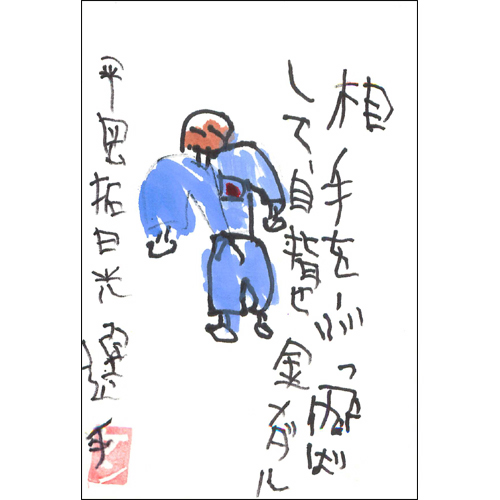 相手をぶっ飛ば
して、自指せ
金メダル
平岡拓晃選手